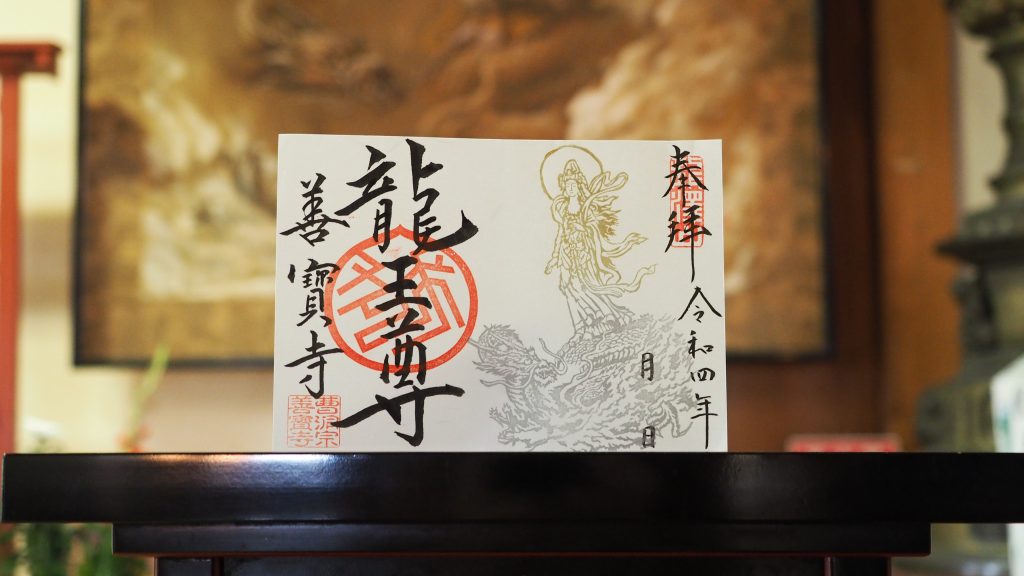 奉拝
令和四年
月 日
龍王尊
善寳寺
曹洞宗
善寳寺